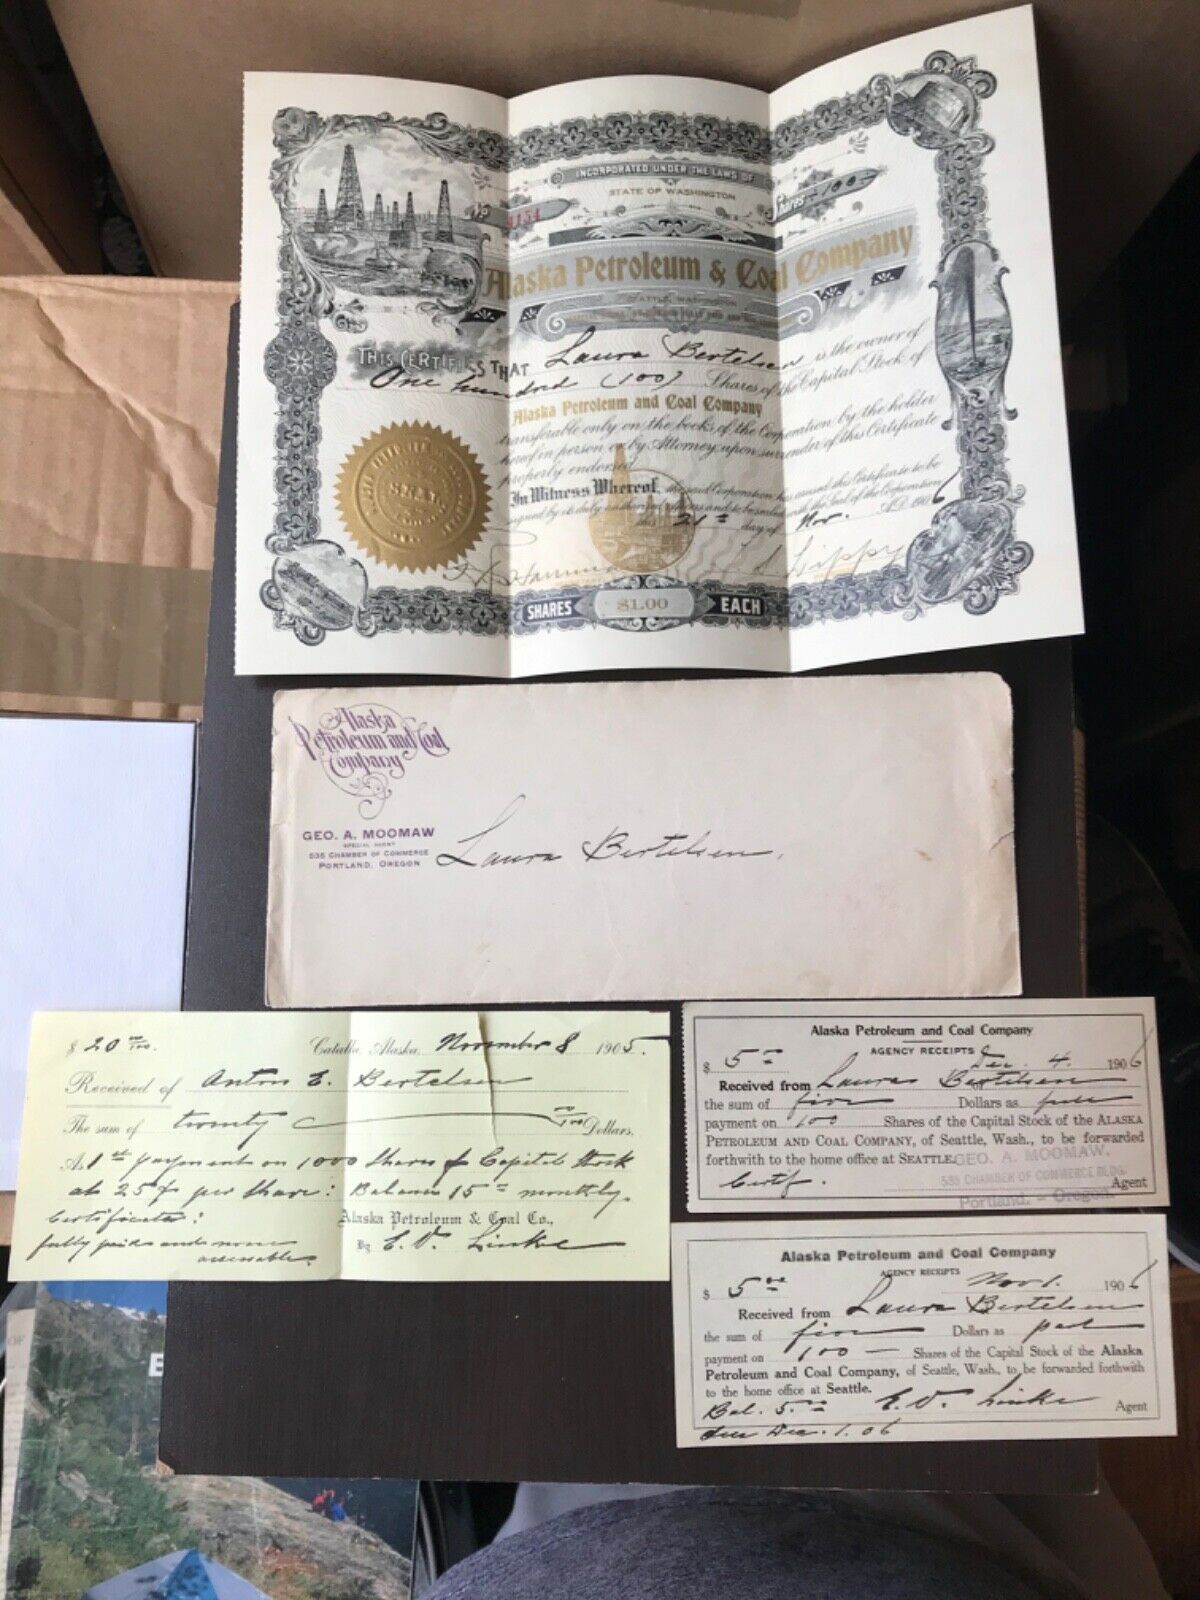 INCORPORATED UNDER THE LAWS OF
STATE OF WASHINGTON
No 1154
Shares - 100 -
Alaska Petroleum & Coal Company
SEATTLE, WASHINGTON
THIS CERTIFIES THAT Laura Bertelsen is the owner of
One hundred (100) Shares of the Capital Stock of
Alaska Petroleum and Coal Company
transferable only on the books of the Corporation by the holder
hereof in person or by Attorney upon surrender of this Certificate
properly endorsed
In Witness Whereof, the said Corporation has caused this Certificate to be
signed by its duly authorized officers and to be sealed with the Seal of the Corporation
this 21st day of Nov. A.D. 1906
T. S. Lippy
SEAL
SHARES $1.00 EACH
Alaska
Petroleum and Coal
Company
GEO. A. MOOMAW
SPECIAL AGENT
535 CHAMBER OF COMMERCE
PORTLAND, OREGON
Laura Bertelsen.
$ 20 00/100. Catalla, Alaska, November 8 1905.
Received of Anton E. Bertelsen
The sum of twenty 00/100 Dollars.
As 1st payment on 1000 Shares of Capital Stock
at 25¢ per share: Balance 15 00 monthly.
Certificates:
fully paid and none
assessable.
Alaska Petroleum & Coal Co.,
By E. V. Linke
Alaska Petroleum and Coal Company
AGENCY RECEIPTS
$ 5 00 Dec. 4. 1906
Received from Laura Bertelsen
the sum of five Dollars as full
payment on 100 Shares of the Capital Stock of the ALASKA
PETROLEUM AND COAL COMPANY, of Seattle, Wash., to be forwarded
forthwith to the home office at SEATTLE.
GEO. A. MOOMAW,
Certif.
535 CHAMBER OF COMMERCE BLDG.
Agent
Portland. - Oregon.
Alaska Petroleum and Coal Company
AGENCY RECEIPTS
$ 5 00 Nov 1. 1906
Received from Laura Bertelsen
the sum of five Dollars as part
payment on 100 — Shares of the Capital Stock of the Alaska
Petroleum and Coal Company, of Seattle, Wash., to be forwarded forthwith
to the home office at Seattle.
Bal. 5.00 E. V. Linke Agent
due Dec. 1. 06